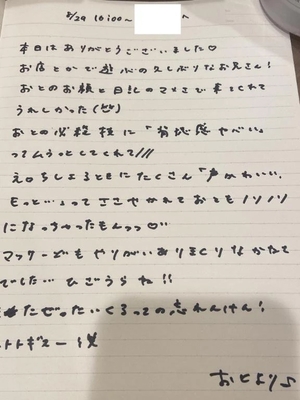 8/29 16:00~
本日はありがとうございました♡
お店とかで遊ぶの久しぶりなお兄さん!
おとのお顔と日記のマメさで来てくれて
うれしかった
おとの必殺技に「背徳感やべぃ」
ってムうっとしてくれて///
えっちしよるときにたくさん「声かわいい。
もっと…」ってささやかれておともノリノリ
になっちゃったもんっっ♡
マッサージもやりがいありまくりなかたで
でした… ひごうらね!!
ぜったいくるっての忘れんけん!
おとより